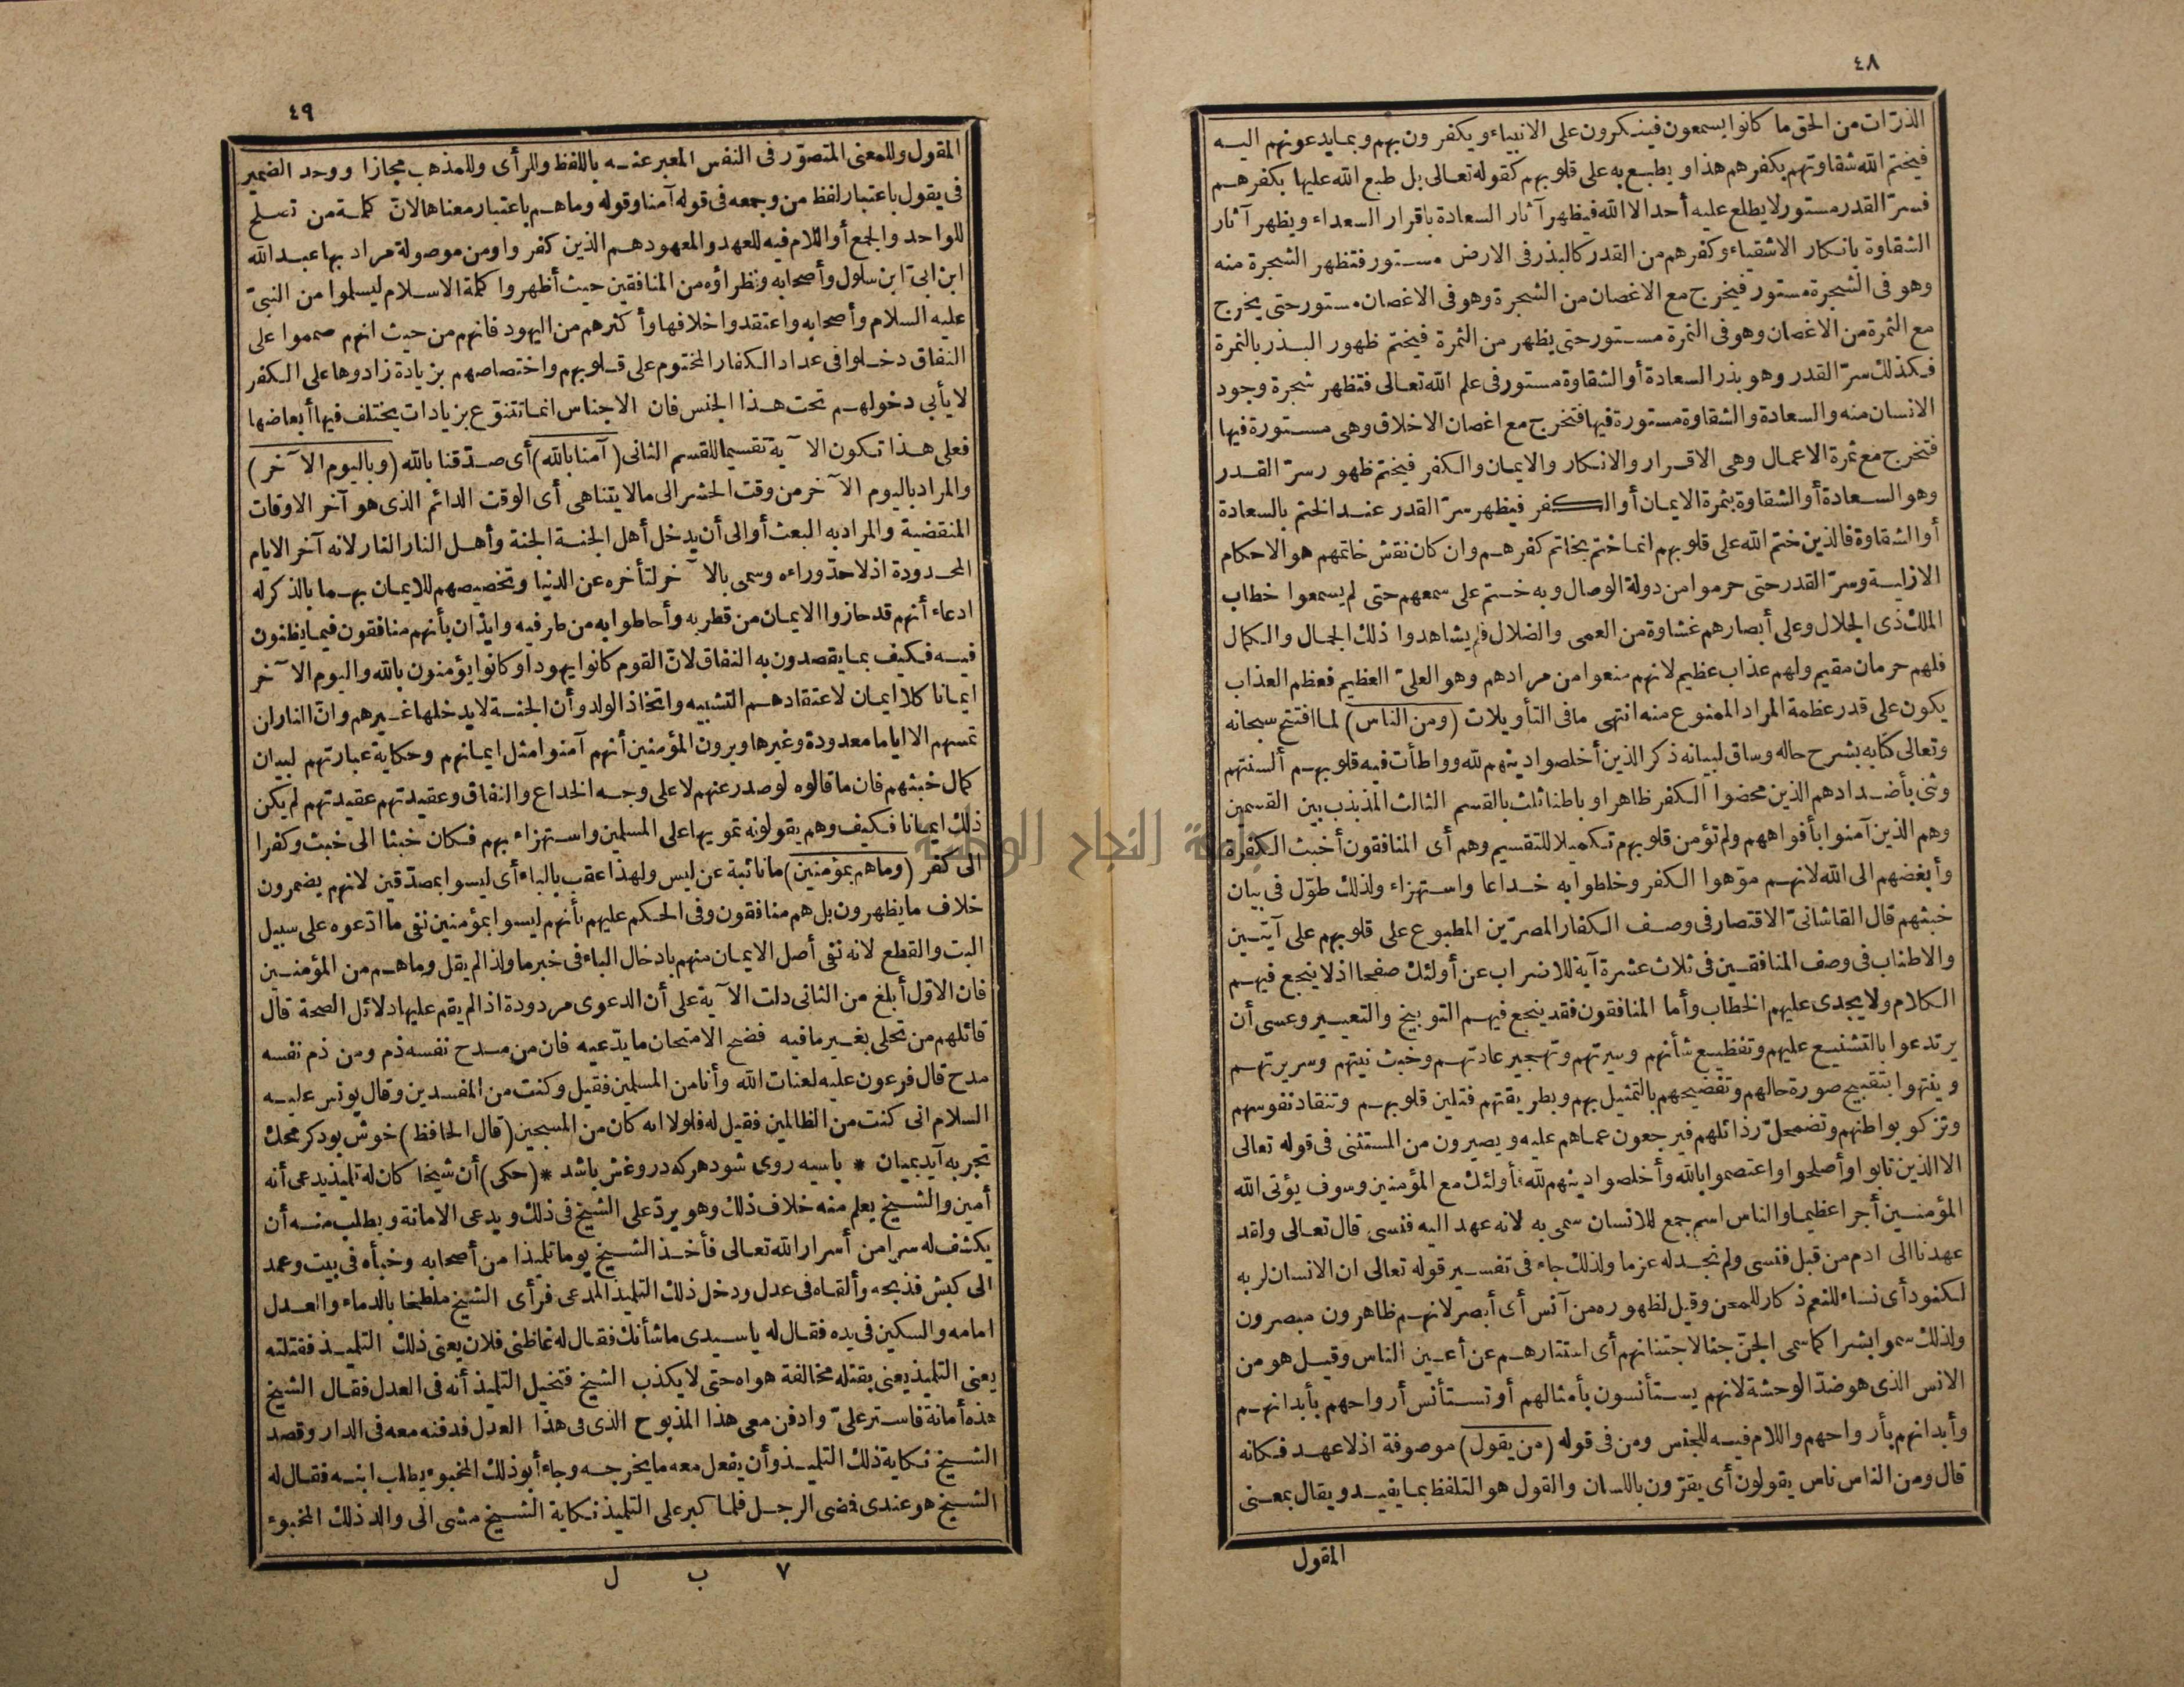 ٤٨
الذرّات من الحق ما كانوا يسمعون فينكرون على الانبياء ويكفرون بهم وبما يدعونهم اليه
فيختم الله شقاوتهم بكفرهم هذا ويطبع به على قلوبهم كقوله تعالى بل طبع الله عليها بكفرهم
فسرّ القدر مستور لا يطلع عليه أحد الا الله فيظهر آثار السعادة باقرار السعداء ويظهر آثار
الشقاوة بانكار الاشقياء وكفرهم من القدر كالبذر فى الارض مستور فتظهر الشجرة منه
وهو فى الشجرة مستور فيخرج مع الاغصان من الشجرة وهو فى الاغصان مستور حتى يخرج
مع الثمرة من الاغصان وهو فى الثمرة مستور حتى يظهر من الثمرة فيختم ظهور البذر بالثمرة
فكذلك سرّ القدر وهو بذر السعادة أو الشقاوة مستور فى علم الله تعالى فتظهر شجرة وجود
الانسان منه والسعادة والشقاوة مستورة فيها فتخرج مع اغصان الاخلاق وهى مستورة فيها
فتخرج مع ثمرة الاعمال وهى الاقرار والانكار والايمان والكفر فيختم ظهور سرّ القدر
وهو السعادة أو الشقاوة بثمرة الايمان أو الكفر فيظهر سرّ القدر عند الختم بالسعادة
أو الشقاوة فالذين ختم الله على قلوبهم انما ختم بخاتم كفرهم وان كان نقش خاتمهم هو الاحكام
الازلية وسرّ القدر حتى حرموا من دولة الوصال وبه ختم على سمعهم حتى لم يسمعوا خطاب
الملك ذى الجلال وعلى أبصارهم غشاوة من العمى والضلال فلم يشاهدوا ذلك الجمال والكمال
فلهم حرمان مقيم ولهم عذاب عظيم لانهم منعوا من مرادهم وهو العلىّ العظيم فعظم العذاب
يكون على قدر عظمة المراد الممنوع منه انتهى ما فى التأويلات (ومن الناس) لما افتتح سبحانه
وتعالى كتابه بشرح حاله وساق لبيانه ذكر الذين أخلصوا دينهم لله وواطأت فيه قلوبهم ألسنتهم
وثنى بأضدادهم الذين محضوا الكفر ظاهرا وباطنا ثلث بالقسم الثالث المذبذب بين القسمين
وهم الذين آمنوا بأفواههم ولم تؤمن قلوبهم تكميلا للتقسيم وهم أى المنافقون أخبث الكفرة
وأبغضهم الى الله لانهم موّهوا الكفر وخلطوا به خداعا واستهزاء ولذلك طوّل فى بيان
خبثهم قال القاشانىّ الاقتصار فى وصف الكفار المصرّين المطبوع على قلوبهم على آيتين
والاطناب فى وصف المنافقين فى ثلاث عشرة آية للاضراب عن أولئك صفحا اذ لا ينجع فيهم
الكلام ولا يجدى عليهم الخطاب وأما المنافقون فقد ينجع فيهم التوبيخ والتعيير وعسى أن
يرتدعوا بالتشنيع عليهم وتفظيع شأنهم وسيرتهم وتهجير عادتهم وخبث نيتهم وسريرتهم
وينتهوا بتقبيح صورة حالهم وتفضيحهم بالتمثيل بهم وبطريقتهم فتلين قلوبهم وتنقاد نفوسهم
وتزكو بواطنهم وتضمحلّ رذائلهم فيرجعون عما هم عليه ويصيرون من المستثنى فى قوله تعالى
الا الذين تابوا وأصلحوا واعتصموا بالله وأخلصوا دينهم لله فأولئك مع المؤمنين وسوف يؤتى الله
المؤمنين أجرا عظيما والناس اسم جمع للانسان سمى به لانه عهد اليه فنسى قال تعالى ولقد
عهدنا الى ادم من قبل فنسى ولم نجد له عزما ولذلك جاء فى تفسير قوله تعالى ان الانسان لربه
لكنود أى نساء للنعم ذكار للمحن وقيل لظهوره من آنس أى أبصر لانهم ظاهرون مبصرون
ولذلك سموا بشرا كما سمى الجنّ جنّا لاجتنانهم أى استتارهم عن أعين الناس وقيل هو من
الانس الذى هو ضدّ الوحشة لانهم يستأنسون بأمثالهم أو تستأنس أرواحهم بأبدانهم
وأبدانهم بأرواحهم واللام فيه للجنس ومن فى قوله (من يقول) موصوفة اذ لا عهد فكانه
قال ومن الناس ناس يقولون أى يقرّون باللسان والقول هو التلفظ بما يفيد ويقال بمعنى
المقول
٤٩
المقول وللمعنى المتصوّر فى النفس المعبر عنه باللفظ وللرأى وللمذهب مجازا ووحد الضمير
فى يقول باعتبار لفظ من وجمعه فى قوله آمنا وقوله وما هم باعتبار معناها لانّ كلمة من تصلح
للواحد والجمع أو اللام فيه للعهد والمعهود هم الذين كفروا ومن موصولة مراد بها عبد الله
ابن ابىّ ابن سلول وأصحابه ونظراؤه من المنافقين حيث أظهروا كلمة الاسلام ليسلموا من النبىّ
عليه السلام وأصحابه واعتقدوا خلافها وأكثرهم من اليهود فانهم من حيث انهم صمموا على
النفاق دخلوا فى عداد الكفار المختوم على قلوبهم واختصاصهم بزيادة زادوها على الكفر
لا يأبى دخولهم تحت هذا الجنس فان الاجناس انما تتنوّع بزيادات يختلف فيها أبعاضها
فعلى هذا تكون الآية تقسيما للقسم الثانى (آمنا بالله) أى صدّقنا بالله (وباليوم الآخر)
والمراد باليوم الآخر من وقت الحشر الى ما لا يتناهى أى الوقت الدائم الذى هو آخر الاوقات
المنقضية والمراد به البعث أو الى أن يدخل أهل الجنة الجنة وأهل النار النار لانه آخر الايام
المحدودة اذ لا حدّ وراءه وسمى بالآخر لتأخره عن الدنيا وتخصيصهم للايمان بهما بالذكر له
ادعاء أنهم قد حازوا الايمان من قطريه وأحاطوا به من طرفيه وايذان بأنهم منافقون فيما يظنون
فيه فكيف بما يقصدون به النفاق لانّ القوم كانوا يهودا وكانوا يؤمنون بالله واليوم الآخر
ايمانا كلا ايمان لاعتقادهم التشبيه واتخاذ الولد وأن الجنة لا يدخلها غيرهم وانّ النار لن
تمسهم الا اياما معدودة وغيرها ويرون المؤمنين أنهم آمنوا مثل ايمانهم وحكاية عبارتهم لبيان
كمال خبثهم فان ما قالوه لو صدر عنهم لا على وجه الخداع والنفاق وعقيدتهم عقيدتهم لم يكن
ذلك ايمانا فكيف وهم يقولونه تمويها على المسلمين واستهزاء بهم فكان خبثا الى خبث وكفرا
الى كفر (وما هم بمؤمنين) ما نائبة عن ليس ولهذا عقب بالباء أى ليسوا بمصدّقين لانهم يضمرون
خلاف ما يظهرون بل هم منافقون وفى الحكم عليهم بأنهم ليسوا بمؤمنين نفى ما ادّعوه على سبيل
البت والقطع لانه نفى أصل الايمان منهم بادخال الباء فى خبر ما ولذا لم يقل وما هم من المؤمنين
فان الاوّل أبلغ من الثانى دلت الآية على أن الدعوى مردودة اذا لم يقم عليها دلائل الصحة قال
قائلهم من تحلى بغير ما فيه فضح الامتحان ما يدّعيه فان من مدح نفسه ذم ومن ذم نفسه
مدح قال فرعون عليه لعنات الله وأنا من المسلمين فقيل وكنت من المفسدين وقال يونس عليه
السلام انى كنت من الظالمين فقيل له فلولا انه كان من المسبحين (قال الحافظ) خوش بود كر محك
تجربه آيد بميان * باسيه روى شود هر كه دروغش باشد * (حكى) أن شيخا كان له تلميذ يدعى أنه
أمين والشيخ يعلم منه خلاف ذلك وهو يردّ على الشيخ فى ذلك ويدعى الامانة ويطلب منه أن
يكشف له سرا من أسرار الله تعالى فأخذ الشيخ يوما تلميذا من أصحابه وخبأه فى بيت وعمد
الى كبش فذبحه وألقاه فى عدل ودخل ذلك التلميذ المدعى فرأى الشيخ ملطخا بالدماء والعدل
امامه والسكين فى يده فقال له يا سيدى ما شأنك فقال له غاظنى فلان يعنى ذلك التلميذ فقتلته
يعنى التلميذ يعنى بقتله مخالفة هواه حتى لا يكذب الشيخ فتخيل التلميذ أنه فى العدل فقال الشيخ
هذه أمانة فاستر علىّ وادفن معى هذا المذبوح الذى فى هذا العدل فدفنه معه فى الدار وقصد
الشيخ نكاية ذلك التلميذ وأن يفعل معه ما يخرجه وجاء أبو ذلك المخبوء يطلب ابنه فقال له
الشيخ هو عندى فمضى الرجل فلما كبر على التلميذ نكاية الشيخ مشى الى والد ذلك المخبوء
٧ ب ل
جامعة النجاح الوطنية